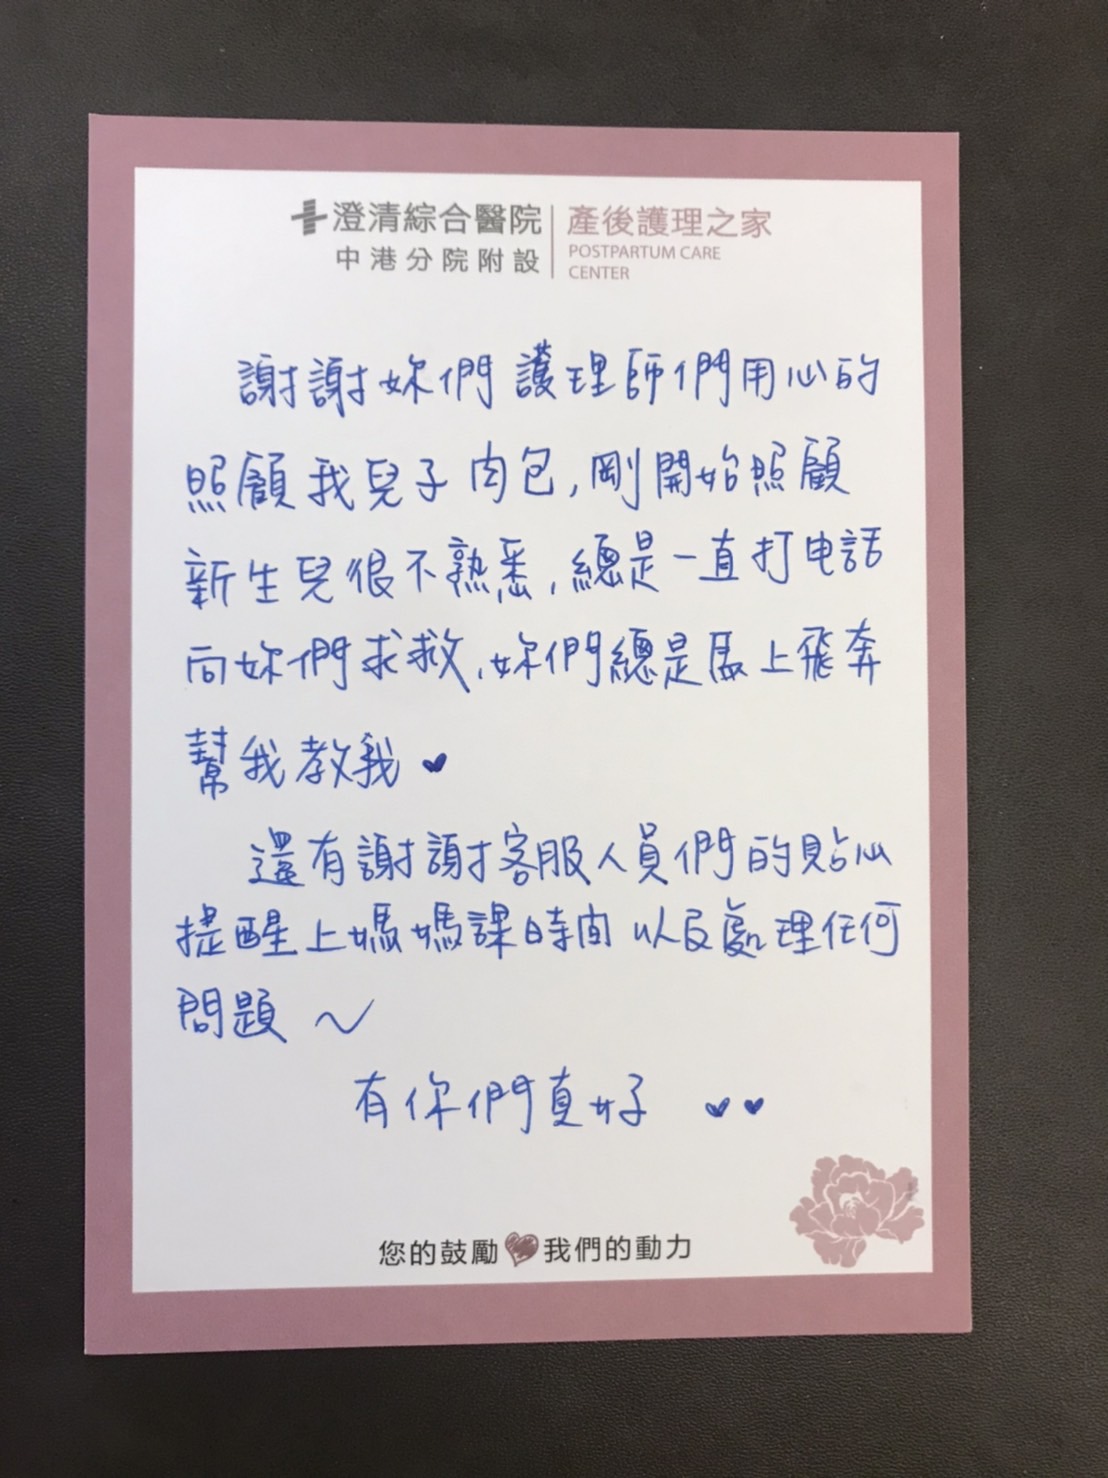 澄清綜合醫院
中港分院附設
產後護理之家
POSTPARTUM CARE
CENTER
謝謝妳們護理師們用心的
照顧我兒子肉包,剛開始照顧
新生兒很不熟悉,總是一直打电話
向妳們求救,妳們總是馬上飛奔
幫我教我
還有謝謝客服人員們的貼心
提醒上媽媽課時間以及處理任何
問題~
有你們真好
您的鼓勵 我們的動力